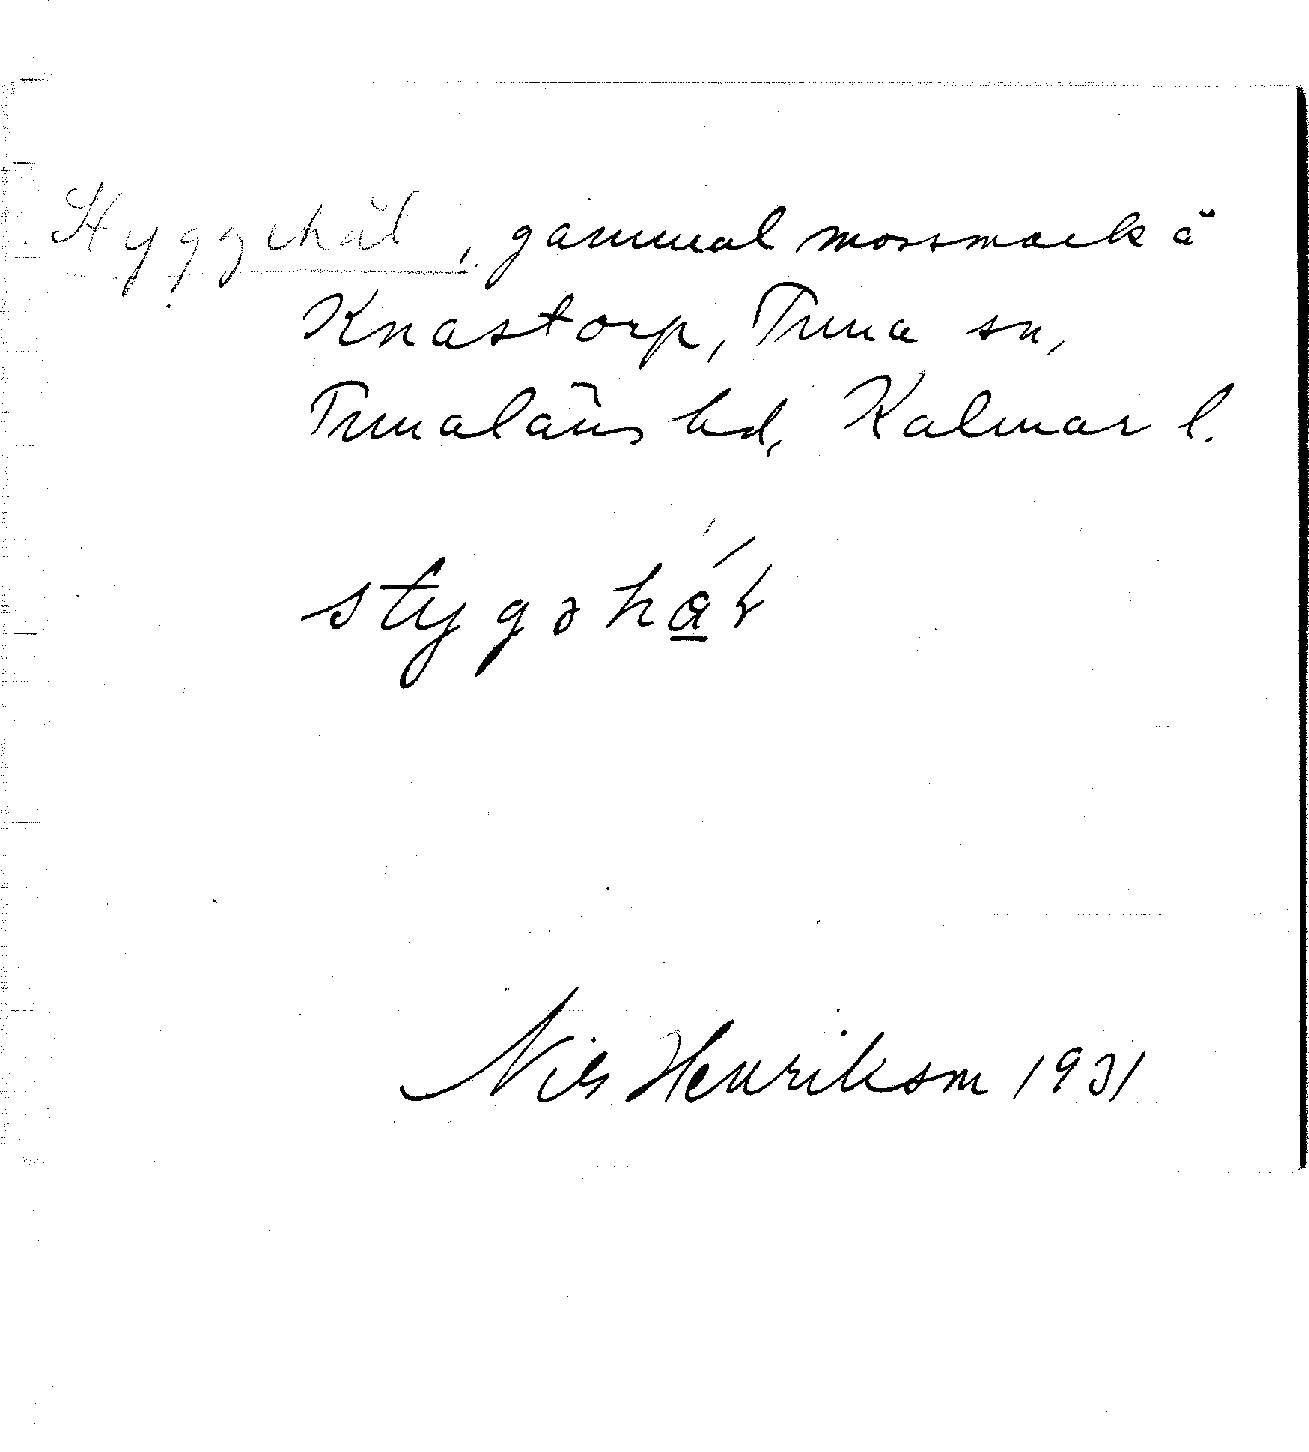 Styggehål, gammal mossmark å
Knastorp, Tuna sn,
Tunaläns hd, Kalmar l.
stygəhål
Nils Henriksson 1931